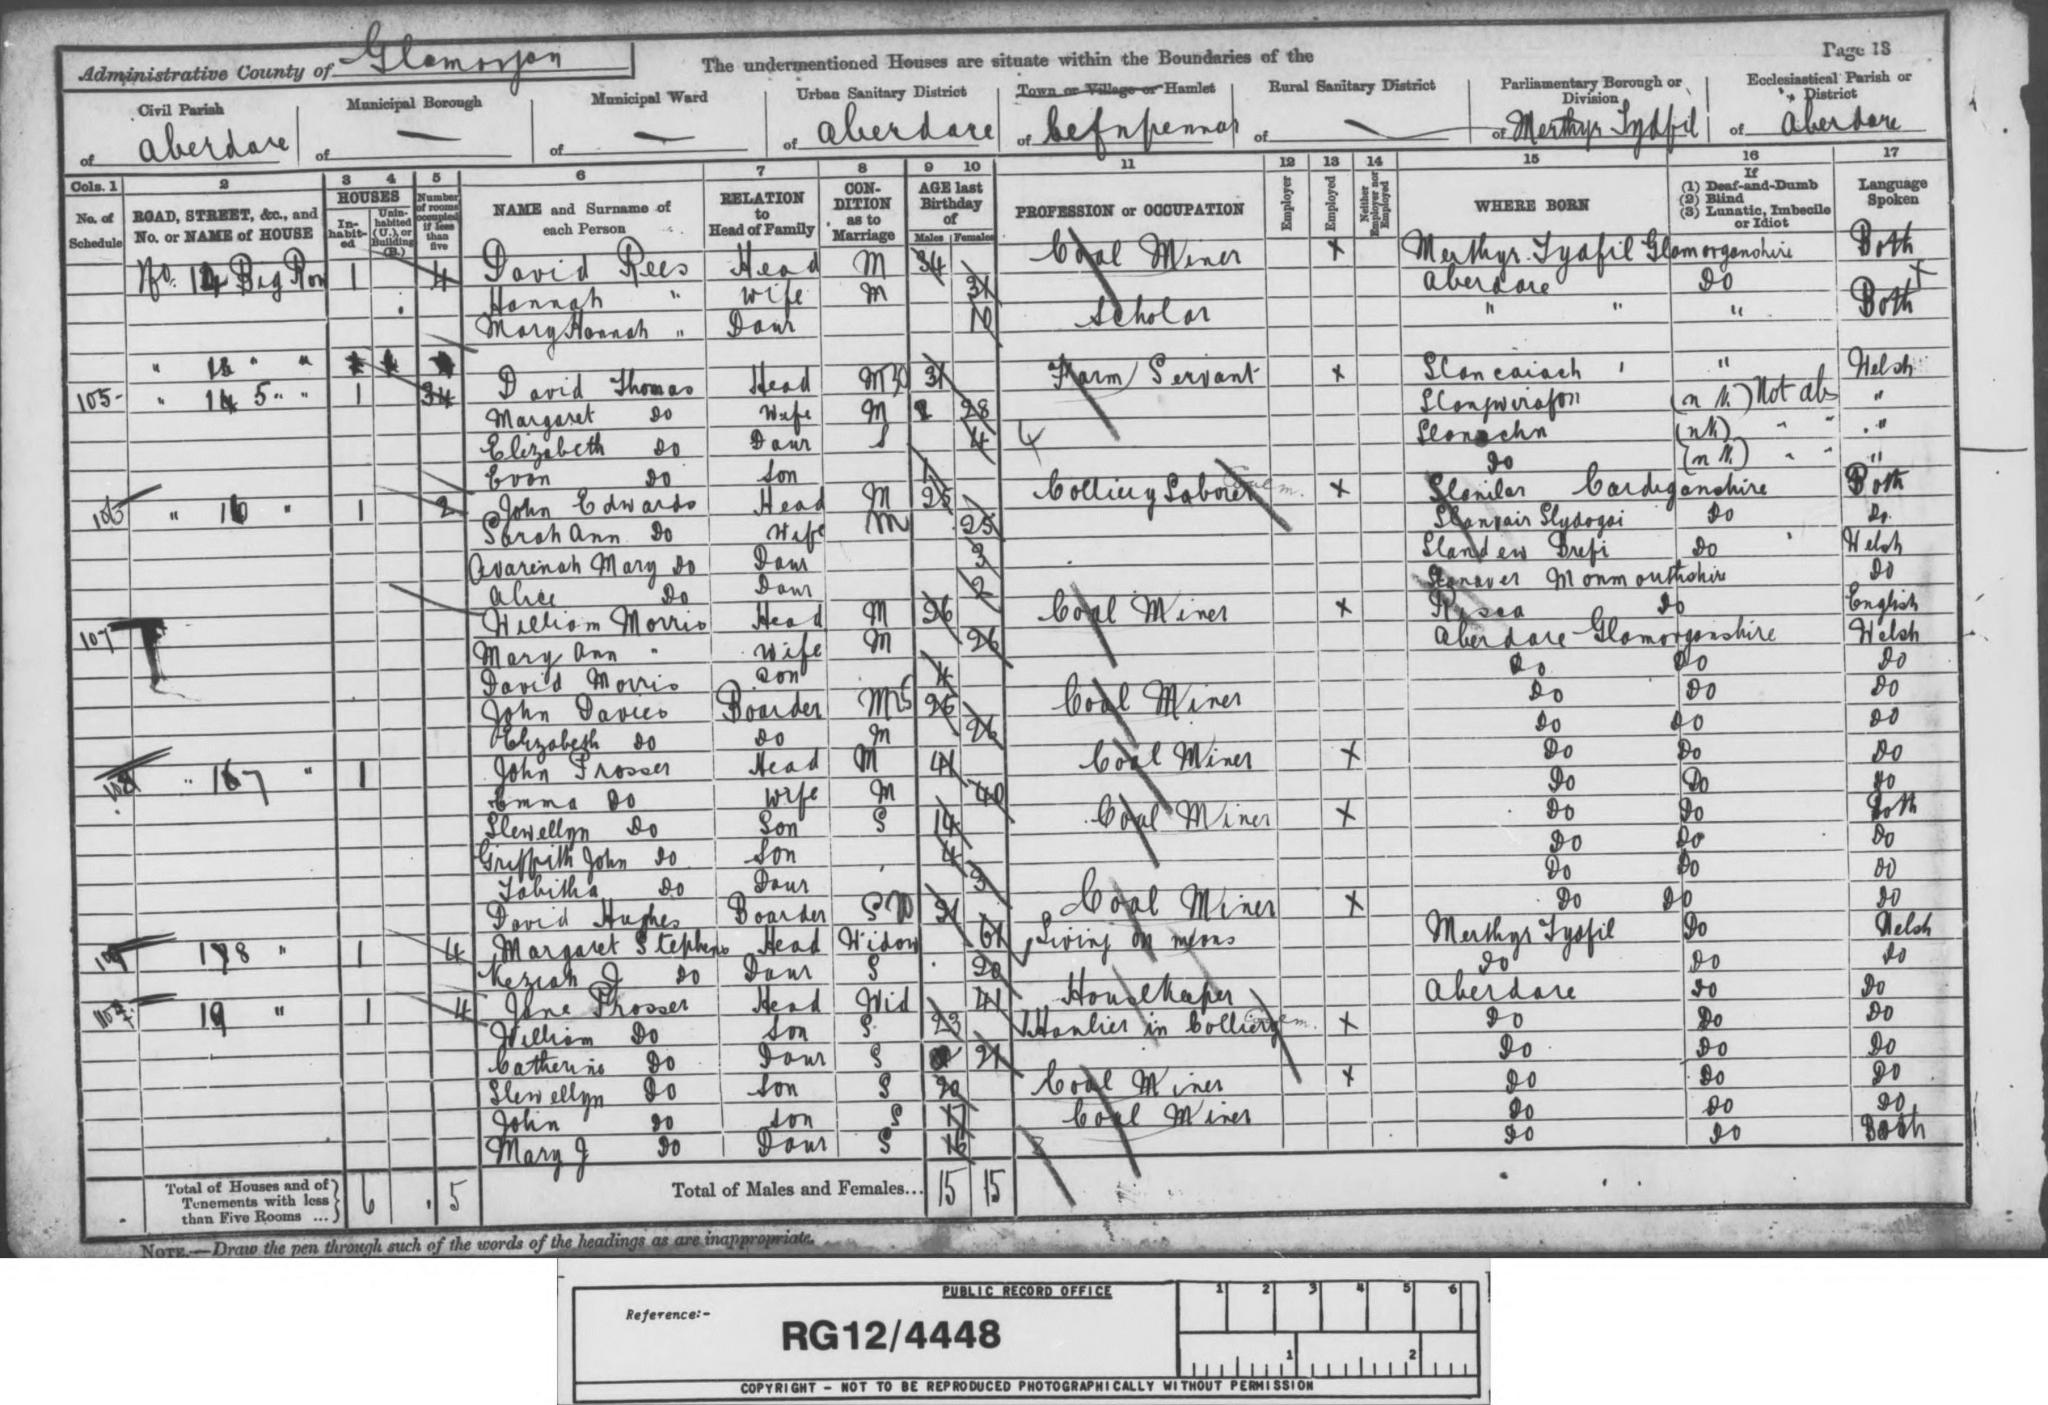 Page 13
Administrative County of Glamorgan
The undermentioned Houses are situate within the Boundaries of the
Civil Parish of Aberdare
Municipal Borough of —
Municipal Ward of —
Urban Sanitary District of Aberdare
Town or Village or Hamlet of Cefnpennar
Rural Sanitary District of —
Parliamentary Borough or Division of Merthyr Tydfil
Ecclesiastical Parish or District of Aberdare
Cols. 1 2 3 4 5 6 7 8 9 10 11 12 13 14 15 16 17
No. of Schedule
ROAD, STREET, &c., and No. or NAME of HOUSE
HOUSES
Inhabited
Uninhabited (U.), or Building (B.)
Number of rooms occupied if less than five
NAME and Surname of each Person
RELATION to Head of Family
CONDITION as to Marriage
AGE last Birthday of
Males Females
PROFESSION or OCCUPATION
Employer
Employed
Neither Employer nor Employed
WHERE BORN
If (1) Deaf-and-Dumb (2) Blind (3) Lunatic, Imbecile or Idiot
Language Spoken
No. Big Row 1 4 David Rees Head M 34 Coal Miner x Merthyr Tydfil Glamorganshire Both
Hannah " Wife M 31 Aberdare Do x
Mary Hannah " Daur 10 Scholar " " " Both
" " "
105 " 5 " " 1 David Thomas Head M 31 Farm Servant x " Welsh
Margaret Do Wife M 28 (n K) Not "
Elizabeth Do Daur S 4 (n K) " " "
Evan Do Son 1 Do (n K) " " "
106 " 16 " 1 2 John Edwards Head M 25 Colliery Laborer x Llanilar Cardiganshire Both
Sarah Ann Do Wife M 25 Do Do
Mary Do Daur 3 Do Welsh
Alice Do Daur 2 Llanover Monmouthshire Do
107 William Morris Head M 26 Coal Miner x Risca Do English
Mary Ann " Wife M 26 Aberdare Glamorganshire Welsh
David Morris Son 4 Do Do Do
John Davies Boarder M 26 Coal Miner Do Do Do
Elizabeth Do Do M 26 Do Do Do
108 " 17 " 1 John Prosser Head M 41 Coal Miner x Do Do Do
Emma Do Wife M 40 Do Do Do
Llewellyn Do Son S 14 Coal Miner x Do Do Both
Griffith John Do Son 4 Do Do Do
Tabitha Do Daur 3 Do Do Do
David Hughes Boarder S Coal Miner x Do Do Do
109 18 " 1 4 Margaret Stephens Head Widow 61 Living on means Merthyr Tydfil Do Welsh
Keziah J Do Daur S 20 Do Do Do
19 " 1 4 Jane Prosser Head Wid 41 Housekeeper Aberdare Do Do
William Do Son S 23 Haulier in Colliery x Do Do Do
Catherine Do Daur S 21 Do Do Do
Llewellyn Do Son S 20 Coal Miner x Do Do Do
John Do Son S 17 Coal Miner Do Do Do
Mary J Do Daur S 16 Do Do Both
Total of Houses and of Tenements with less than Five Rooms ... 6 5
Total of Males and Females... 15 15
NOTE.—Draw the pen through such of the words of the headings as are inappropriate.
PUBLIC RECORD OFFICE
1 2 3 4 5 6
Reference:-
RG12/4448
1 2
COPYRIGHT - NOT TO BE REPRODUCED PHOTOGRAPHICALLY WITHOUT PERMISSION